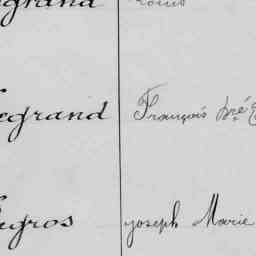 egrand Louis
egrand François
egros Joseph Marie